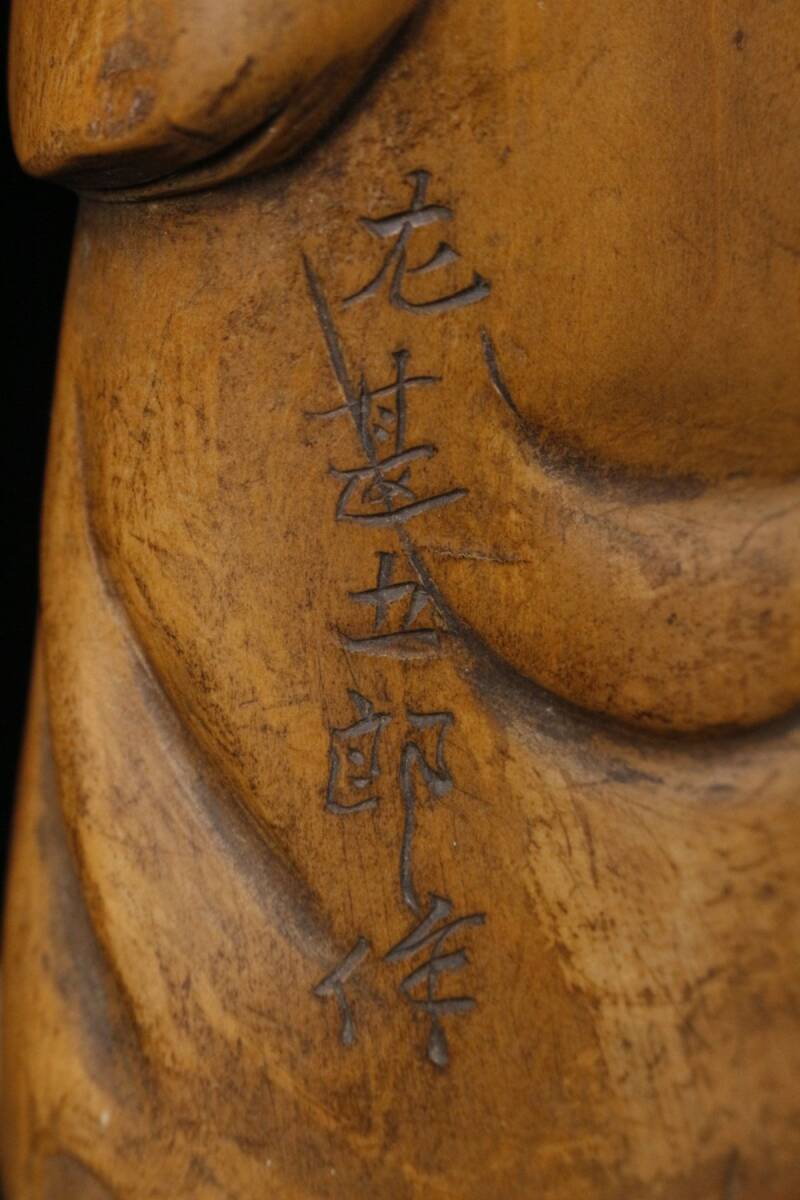 左甚五郎作